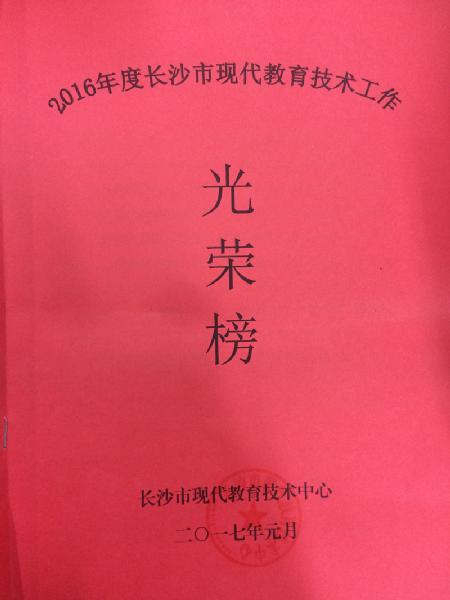 2016年度长沙市现代教育技术工作
光
荣
榜
长沙市现代教育技术中心
二〇一七年元月